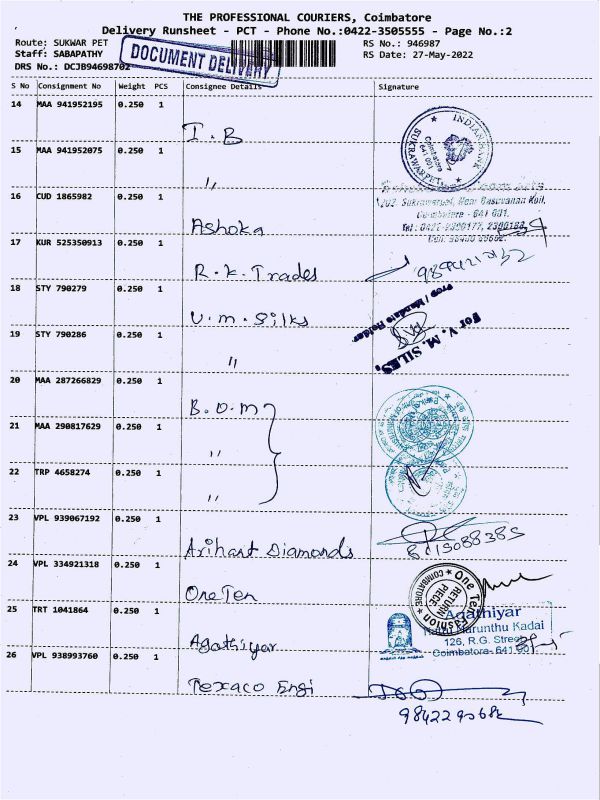 THE PROFESSIONAL COURIERS, Coimbatore
Delivery Runsheet - PCT - Phone No.:0422-3505555 - Page No.:2
Route: SUKWAR PET RS No.: 946987
Staff: SABAPATHY RS Date: 27-May-2022
DRS No.: DCJB94698702
DOCUMENT DELIVERY
S No Consignment No Weight PCS Consignee Details Signature
14 MAA 941952195 0.250 1
I.B
INDIAN BANK
SUKRAWARPET
Coimbatore
641 001
15 MAA 941952075 0.250 1
"
16 CUD 1865982 0.250 1
Ashoka
202, Sukrawarpet, Near Basuvanan Koil,
Coimbatore - 641 001.
17 KUR 525350913 0.250 1
R.K. Trades
18 STY 790279 0.250 1
V.M. Silks
For V. M. SILKS,
Prop / Mandate Holder
19 STY 790286 0.250 1
"
20 MAA 287266829 0.250 1
B.O.M
21 MAA 290817629 0.250 1
"
22 TRP 4658274 0.250 1
"
23 VPL 939067192 0.250 1
Arihant Diamonds
24 VPL 334921318 0.250 1
One Ten
One Ten Fashion
COIMBATORE
RETURN
PIECE
25 TRT 1041864 0.250 1
Agathiyar
Agathiyar
Marunthu Kadai
126, R.G. Street
Coimbatore- 641 001
26 VPL 938993760 0.250 1
Texaco Engi